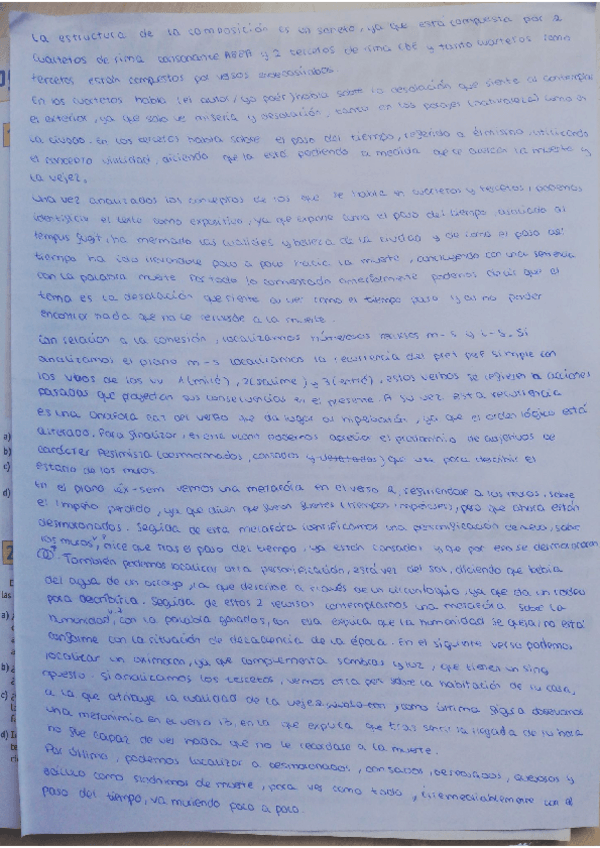 La estructura de la composición es un soneto, ya que está compuesta por 2
cuartetos de rima consonante ABBA y 2 tercetos de rima CDE y tanto cuartetos como
tercetos están compuestos por versos endecasílabos.
En los cuartetos habla (el autor/yo poét) habla sobre la desolación que siente al contemplar
el exterior, ya que solo ve miseria y desolación, tanto en los paisajes (naturaleza) como en
la ciudad. En los tercetos habla sobre el paso del tiempo, referido a él mismo, utilizando
el concepto virilidad, diciendo que la está perdiendo a medida que se acercan la muerte y
la vejez.
Una vez analizados los conceptos de los que se habla en cuartetos y tercetos, podemos
identificar el texto como expositivo, ya que expone como el paso del tiempo, aludiendo al
tempus fugit, ha mermado las cualidades y belleza de la ciudad y así como el paso del
tiempo ha ido llevándose poco a poco hacia la muerte, concluyendo con una sentencia
con la palabra muerte. Por todo lo comentado anteriormente podemos decir que el
tema es la desolación que siente al ver como el tiempo pasa y al no poder
encontrar nada que no le recuerde a la muerte.
Con relación a la cohesión, localizamos numerosos recursos m-s y l-s. Si
analizamos el plano m-s localizamos la recurrencia del pret perf simple con
los vbos de los vv 1(miré), 2(salíme) y 3(entré), estos verbos se refieren a acciones
pasadas que proyectan sus consecuencias en el presente. A su vez esta recurrencia
es una anáfora del verbo que da lugar al hipérbaton, ya que el orden lógico está
alterado. Para finalizar, en este podemos apreciar el predominio de adjetivos de
carácter pesimista (desmoronados, cansados y ) que usa para describir el
estado de los muros.
En el plano léx-sem vemos una metáfora en el verso 2, refiriéndose a los muros, sobre
el imperio perdido, ya que dicen que fueron fuertes (tiempos imperiales), pero que ahora están
desmoronados. Seguida de esta metáfora identificamos una personificación de nuevo, sobre
los muros, dice que tras el paso del tiempo, ya están cansados y que por eso se desmoronaron
También podemos localizar otra personificación, esta vez del sol, diciendo que bebía
del agua de un arroyo, la que describe a través de un circunloquio, ya que da un rodeo
para describirla. Seguida de estos 2 recursos contemplamos una metáfora sobre la
humanidad, con la palabra ganados, con ella explica que la humanidad se queja/no está
conforme con la situación de decadencia de la época. En el siguiente verso podemos
localizar un oxímoron, ya que complementa sombras y luz, que tienen un sing
opuesto. Si analizamos los tercetos, vemos otra per sobre la habitación de su casa,
a la que atribuye la cualidad de la vejez, como última figura observamos
una metonimia en el verso 13, en la que explica que tras sentir la llegada de su hora
no fue capaz de ver nada que no le recordase a la muerte.
Por último, podemos localizar a desmoronados, cansados, despojados, quejosos y
báculo como sinónimos de muerte, para ver como todo, irremediablemente con el
paso del tiempo, va muriendo poco a poco.